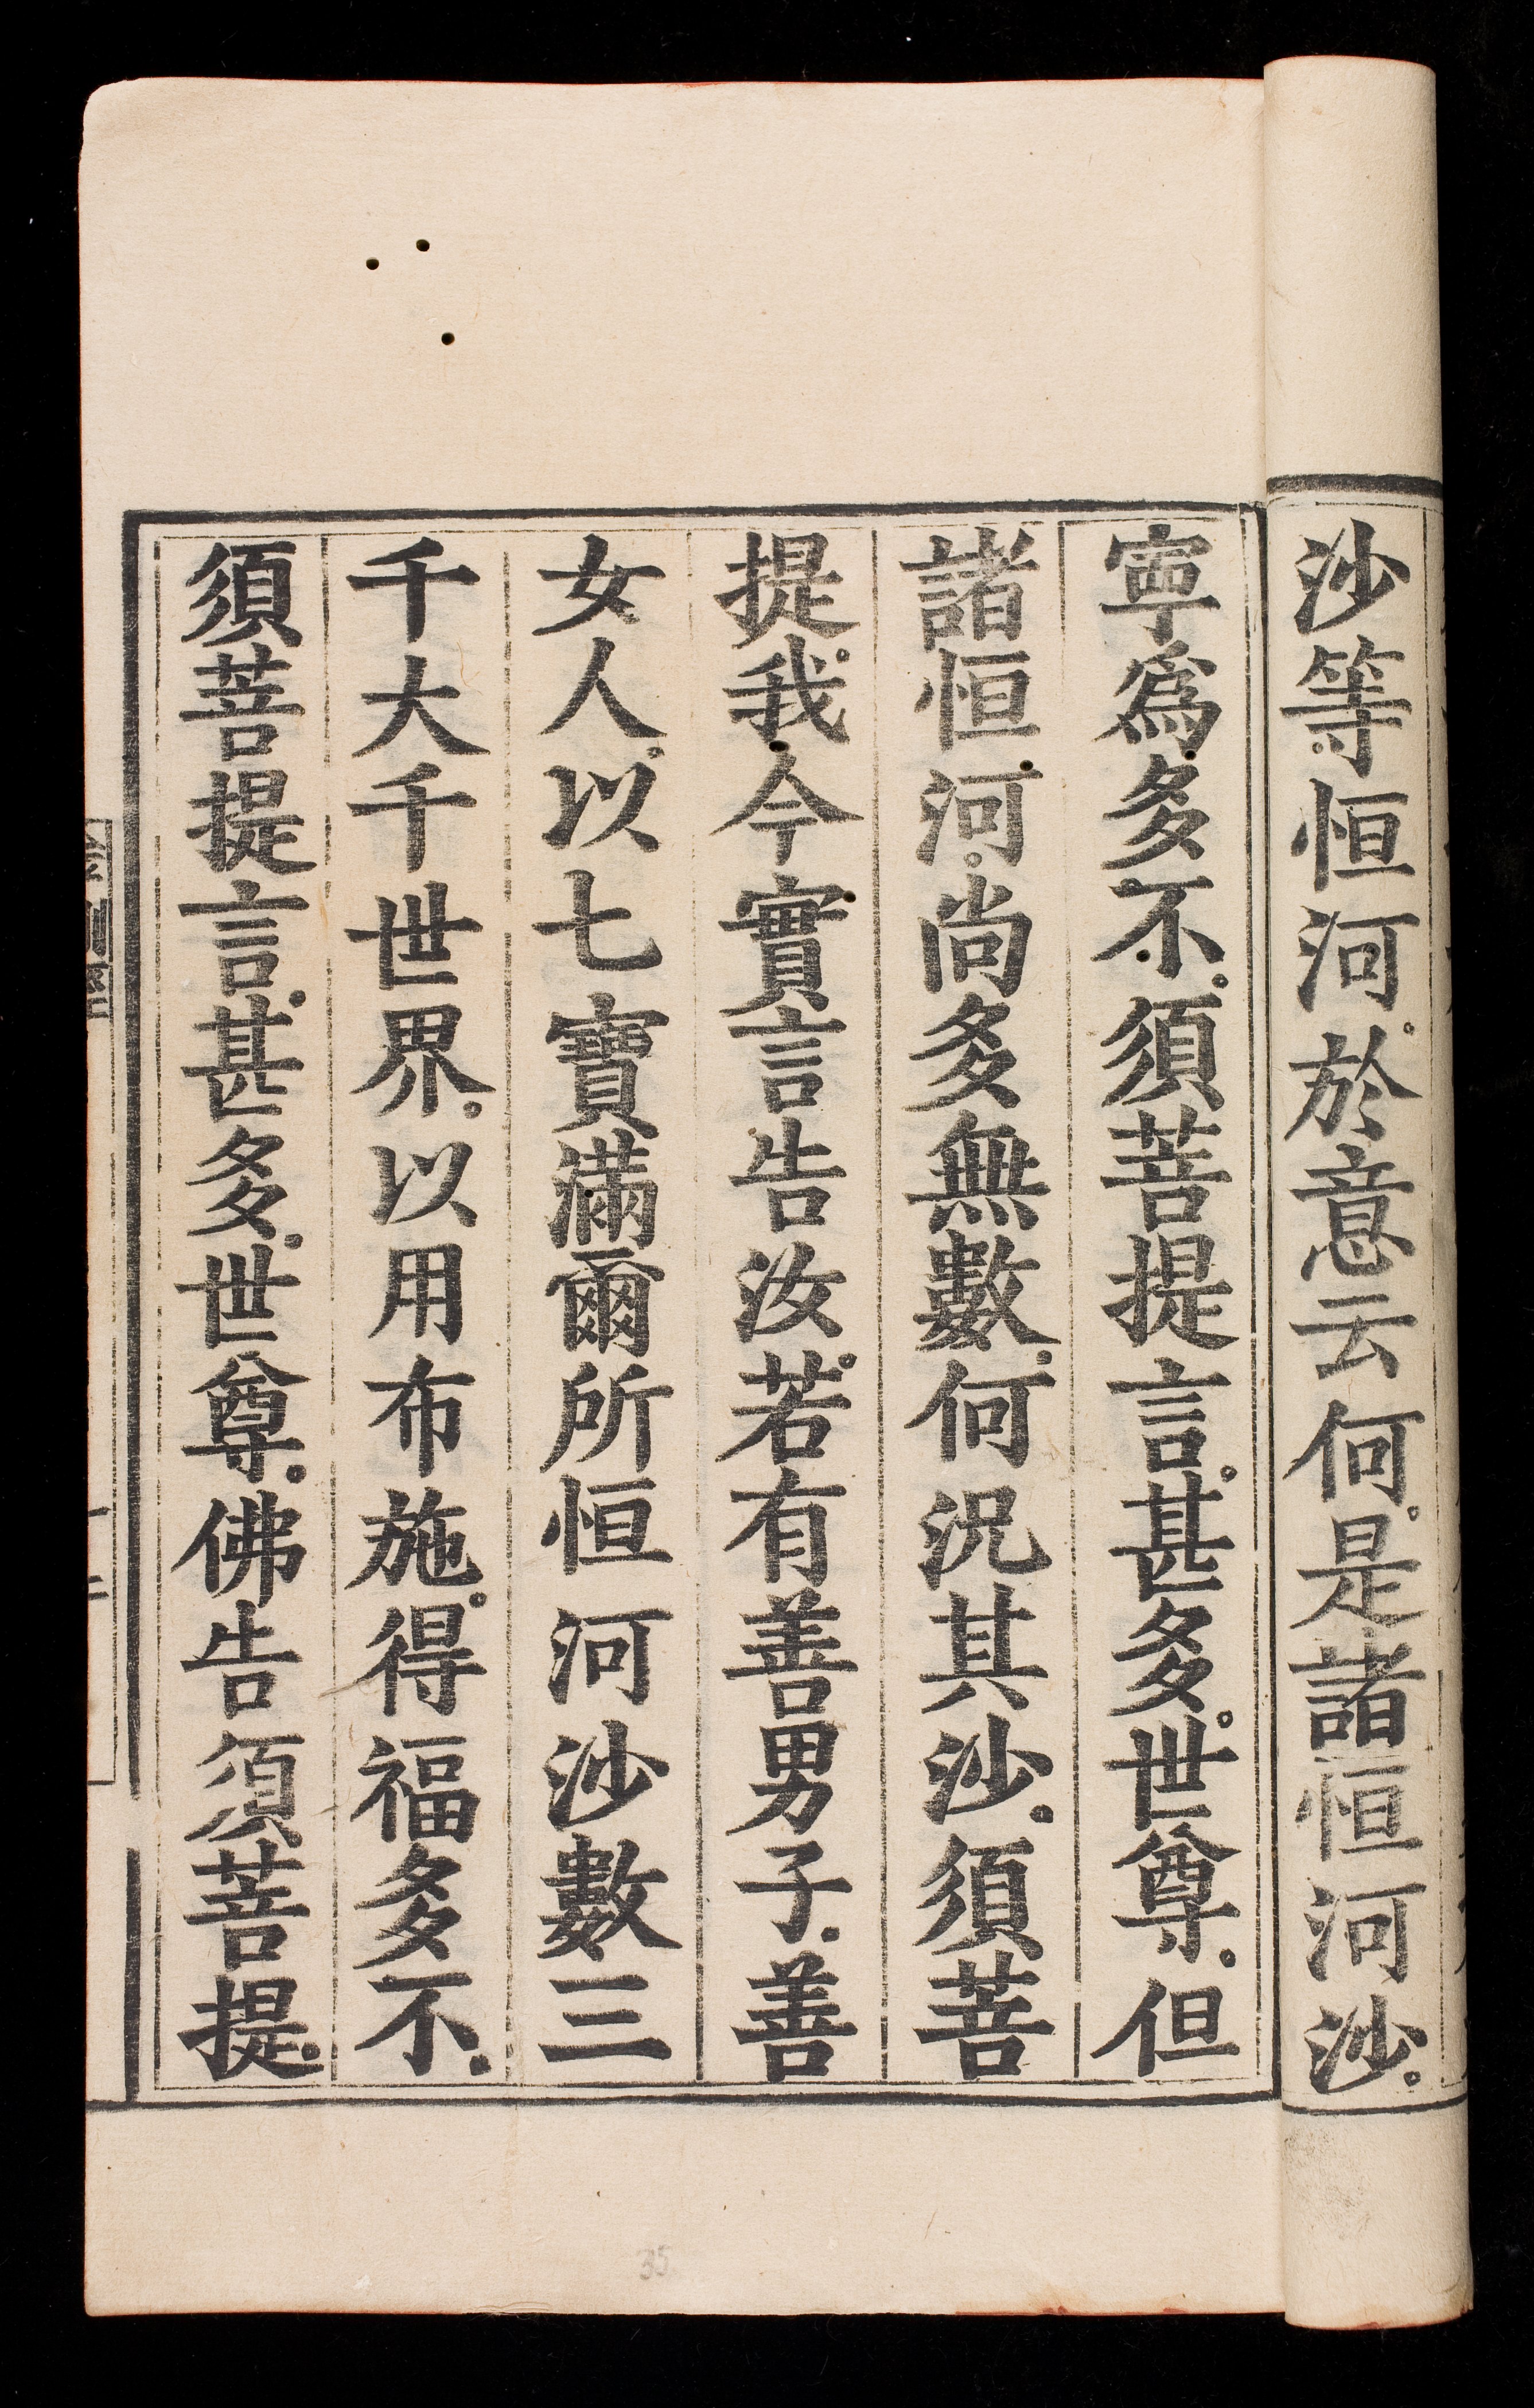 沙等恒河。於意云何。是諸恒河沙。
寧為多不。須菩提言。甚多。世尊。但
諸恒河。尚多無數。何況其沙。須菩
提。我今實言告汝。若有善男子。善
女人。以七寶滿爾所恒河沙數三
千大千世界。以用布施。得福多不。
須菩提言。甚多。世尊。佛告須菩提。
35